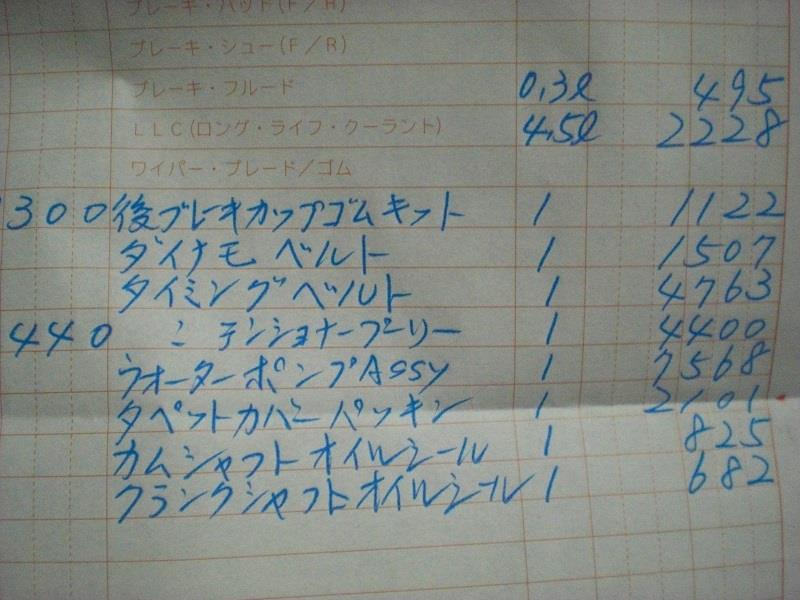 ブレーキ・パッド(F/R)
ブレーキ・シュー(F/R)
ブレーキ・フルード 0.3ℓ 495
LLC(ロング・ライフ・クーラント) 4.5ℓ 2228
ワイパー・ブレード/ゴム
300 後ブレーキカップゴムキット 1 1122
ダイナモベルト 1 1507
タイミングベルト 1 4763
440 〃 テンショナープーリー 1 4400
ウォーターポンプAssy 1 7568
タペットカバーパッキン 1 2101
カムシャフトオイルシール 1 825
クランクシャフトオイルシール 1 682